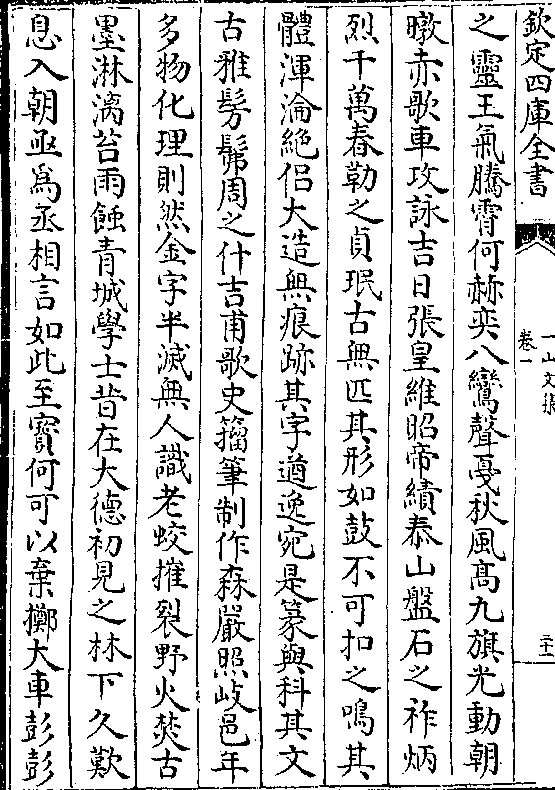 欽定四庫全書
一山文集
卷一
二十一
之靈王氣騰霄何赫奕八鸞聲戞秋風髙九旗光動朝
暾赤歌車攻詠吉日張皇維昭帝績泰山盤石之祚炳
烈千萬春勒之貞珉古無匹其形如鼓不可扣之鳴其
體渾淪絶侣大造無痕跡其字遒逸宛是篆與科其文
古雅髣髴周之什吉甫歌史籀筆制作森嚴照岐邑年
多物化理則然金字半滅無人識老蛟摧裂野火焚古
墨淋漓苔雨蝕青城學士昔在大德初見之林下久歎
息入朝亟爲丞相言如此至寳何可以棄擲大車彭彭